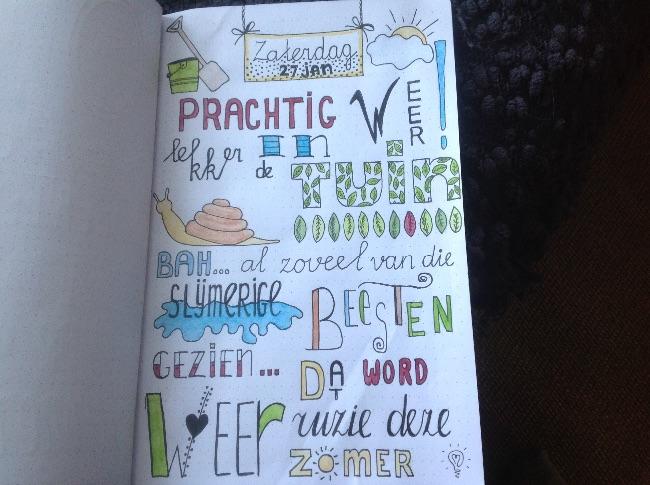 Zaterdag
27 JAN
PRACHTIG WEER!
lekker IN
de TUIN
BAH... al zoveel van die
SLIJMERIGE BEESTEN
GEZIEN... DAT WORD
WEER ruzie deze
ZOMER